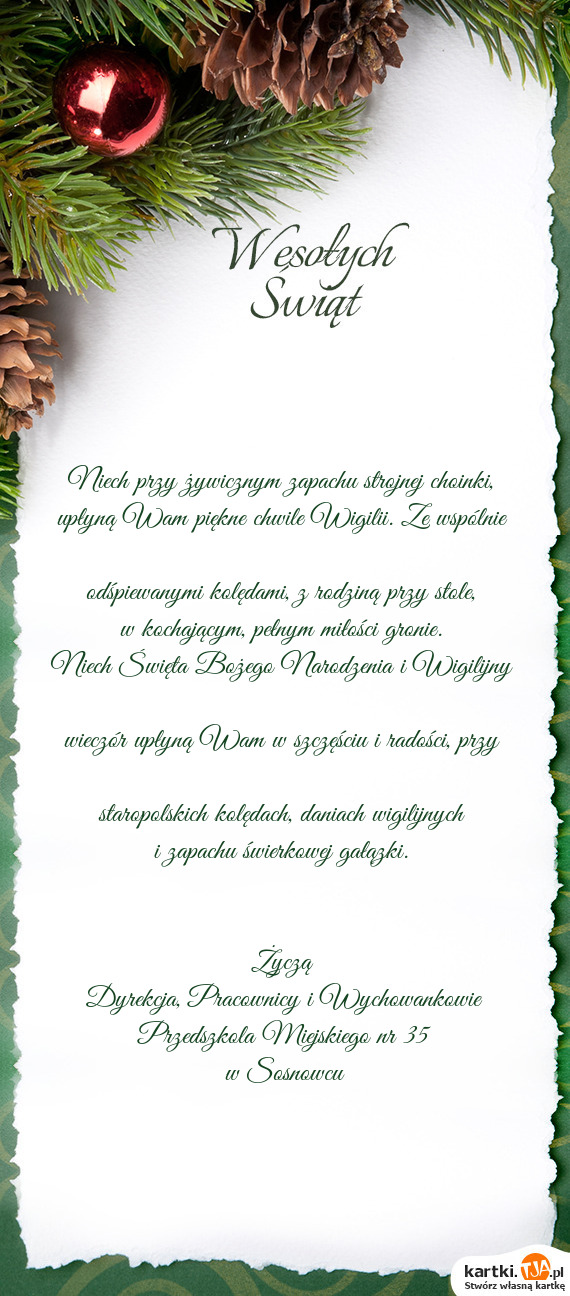 Wesołych
Świąt
Niech przy żywicznym zapachu strojnej choinki,
upłyną Wam piękne chwile Wigilii. Ze wspólnie
odśpiewanymi kolędami, z rodziną przy stole,
w kochającym, pełnym miłości gronie.
Niech Święta Bożego Narodzenia i Wigilijny
wieczór upłyną Wam w szczęściu i radości, przy
staropolskich kolędach, daniach wigilijnych
i zapachu świerkowej gałązki.
Życzą
Dyrekcja, Pracownicy i Wychowankowie
Przedszkola Miejskiego nr 35
w Sosnowcu
kartki.TJA.pl
Stwórz własną kartkę